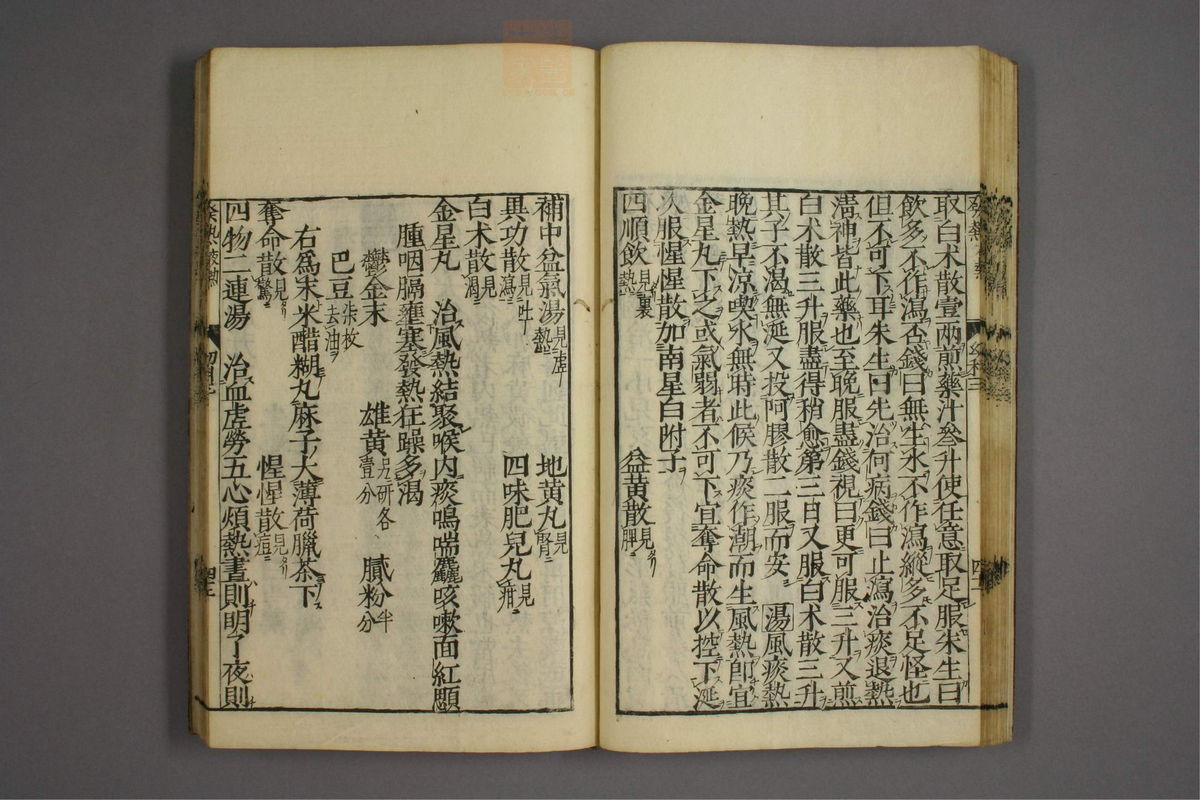 取白术散壹兩煎藥汁叁升使任意取足服朱生曰
飲多不作瀉否錢曰無生水不作瀉縱多不足怪也
但不可下耳朱生曰先治何病錢曰止瀉治痰退熱
清神皆此藥也至晚服盡錢視曰更可服三升又煎
白术散三升服盡得稍愈第三日又服白术散三升
其子不渴無涎又投阿膠散二服而安　湯風痰熱
晚熱早涼喫水無時此候乃痰作潮而生風熱即宜
金星丸下之或氣弱者不可下宜奪命散以控下涎
次服惺惺散加南星白附子
四順飲見裏熱　益黃散見脾
補中益氣湯見虛熱　地黃丸見腎
異功散見吐瀉　四味肥兒丸見疳
白术散見渴
金星丸　治風熱結聚喉內痰鳴喘麤咳嗽面紅腮
腫咽膈壅塞發熱狂躁多渴
鬱金末　雄黃另研各壹分　膩粉半分
巴豆柒枚去油
右為末米醋糊丸麻子大薄荷臘茶下
奪命散見驚　惺惺散見痘
四物二連湯　治血虛勞五心煩熱晝則明了夜則